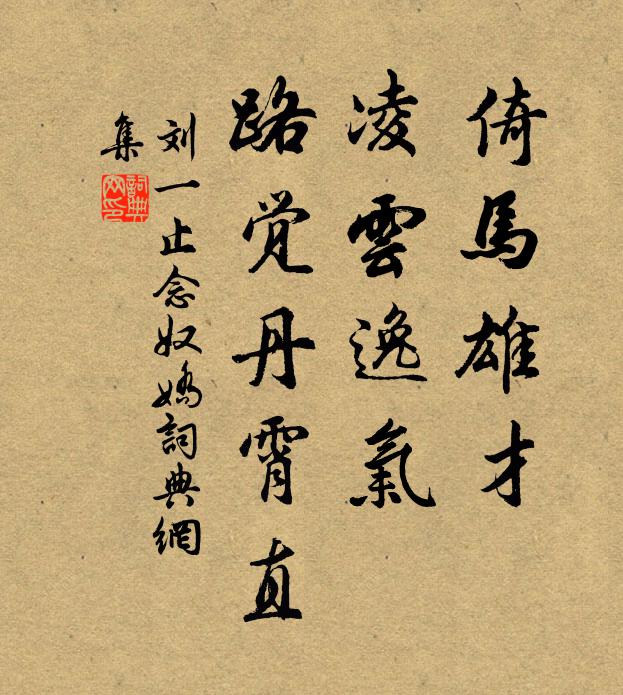 倚馬雄才
凌雲逸氣
路觉丹霄直
刘一止念奴嬌詞典網
集
詞典網印